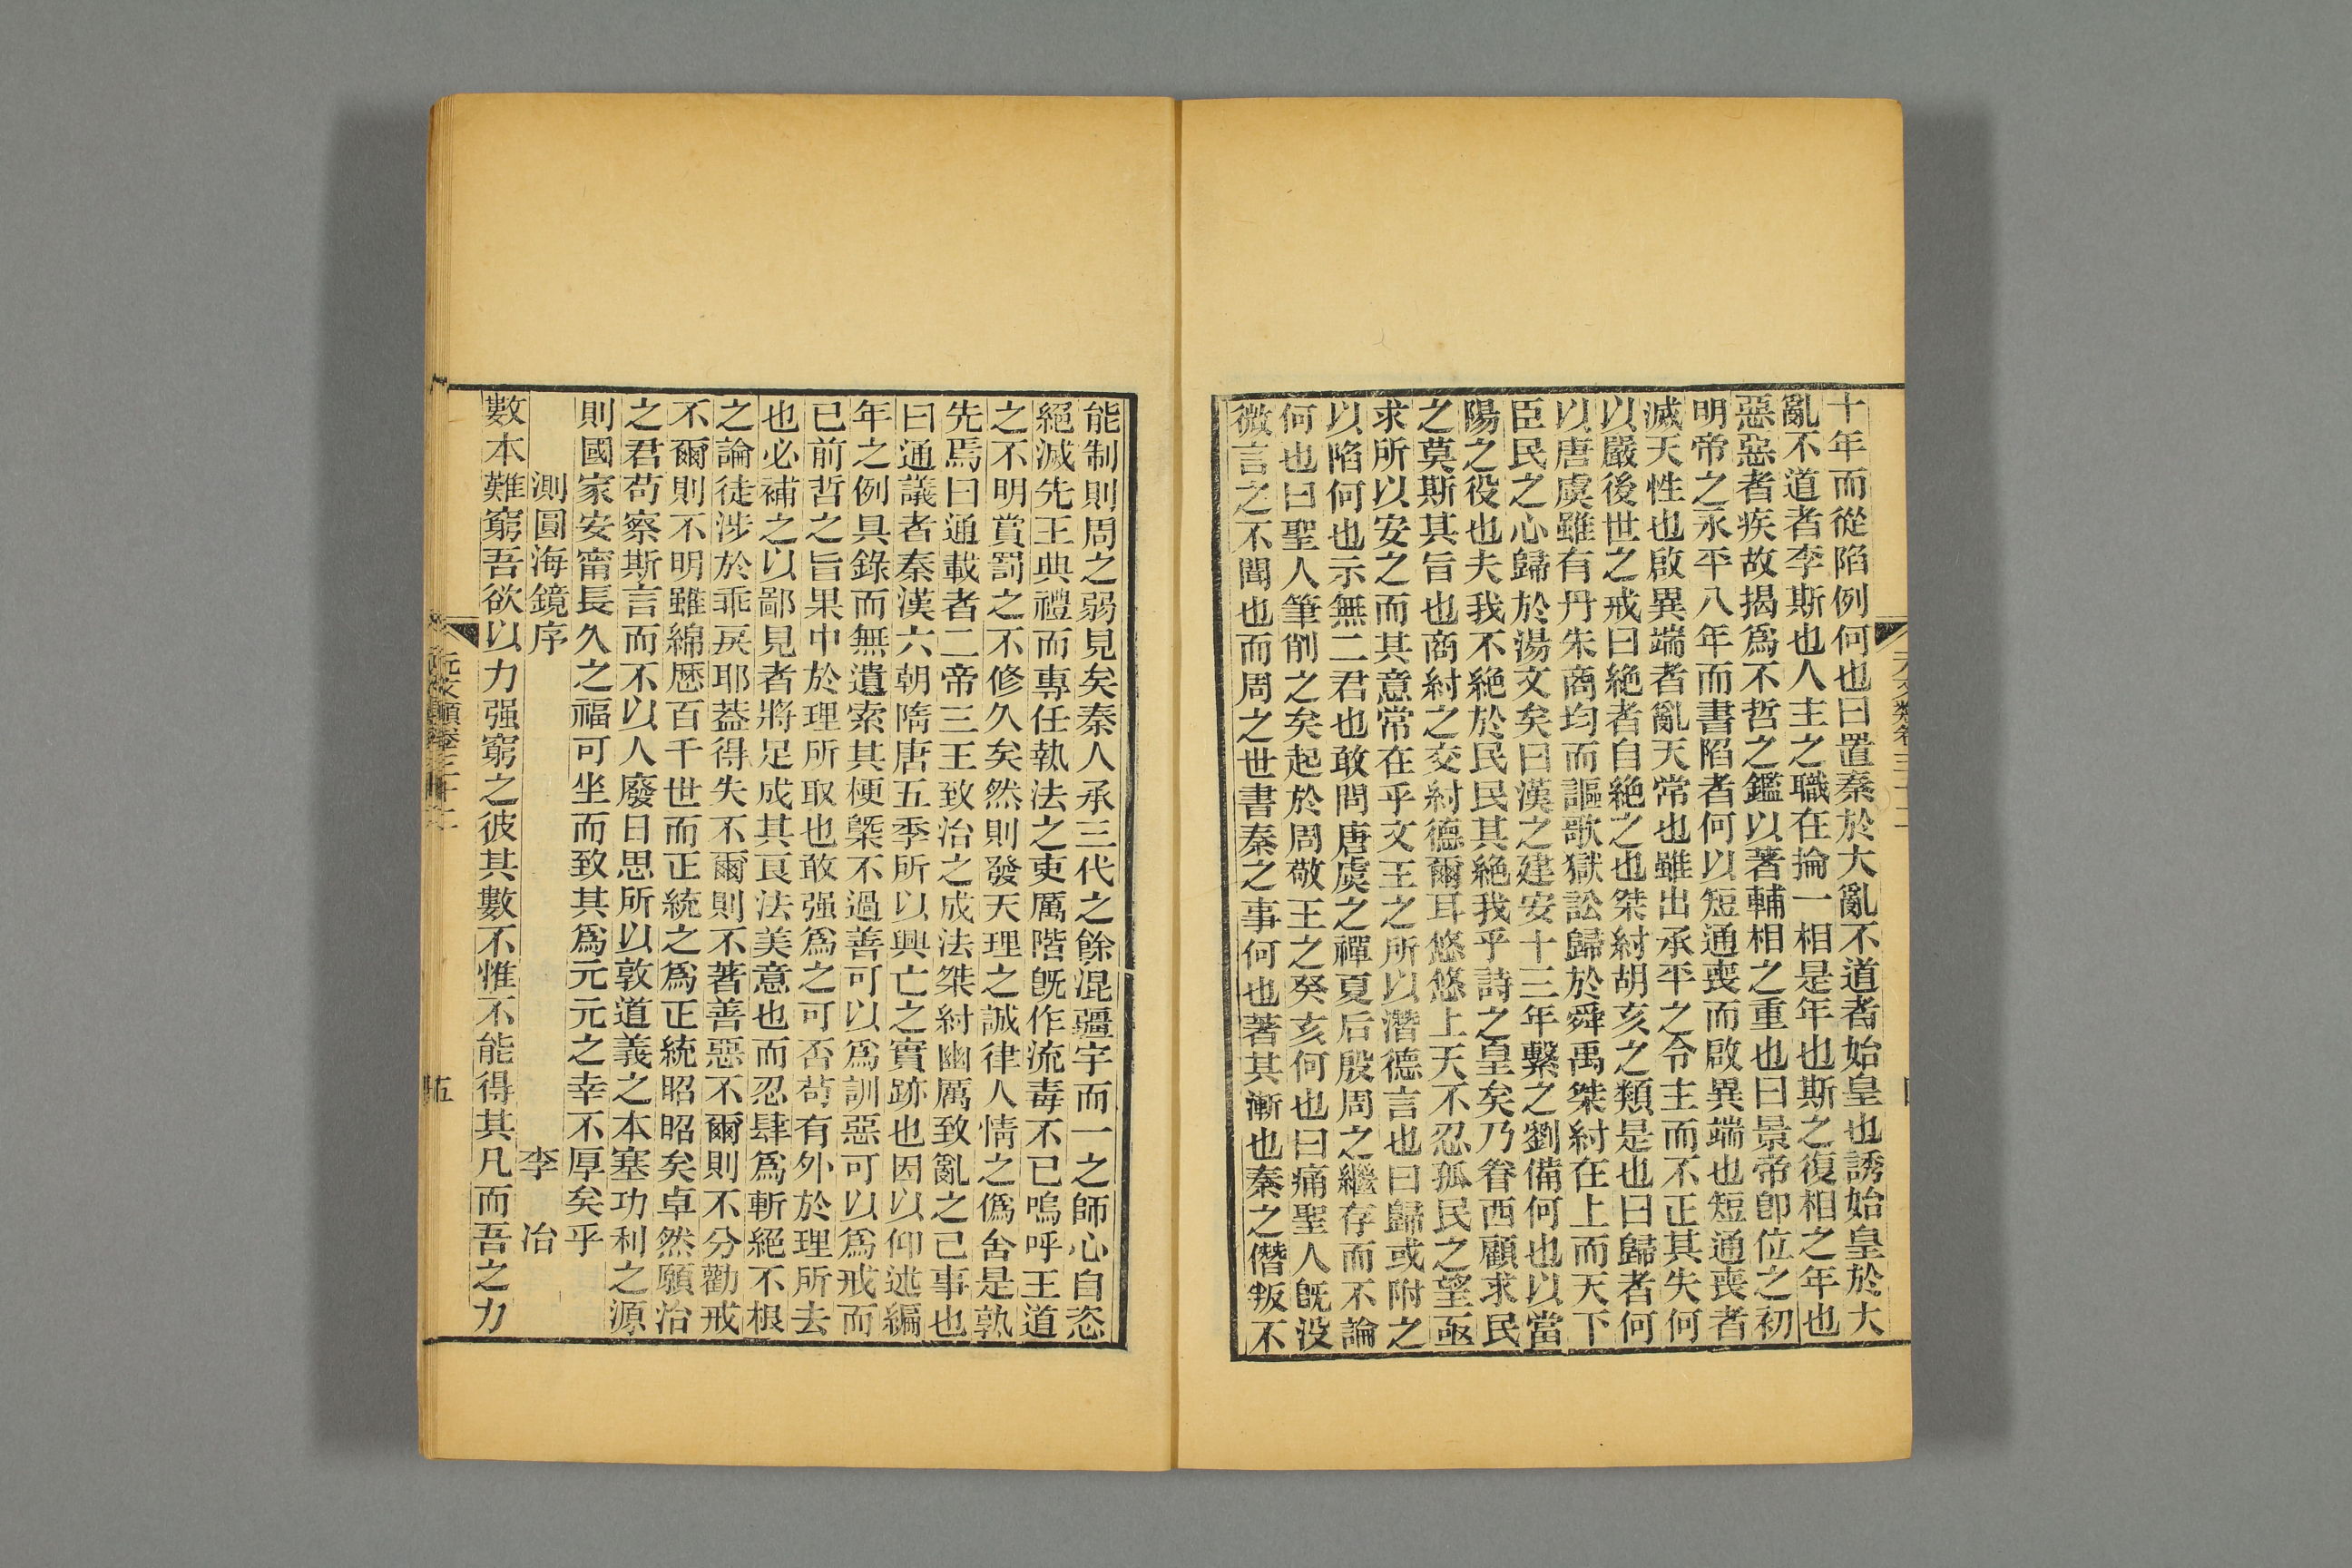 十年而從陷例何也曰置秦於大亂不道者始皇也誘始皇於大
亂不道者李斯也人主之職在掄一相是年也斯之復相之年也
惡惡者疾故揭爲不哲之鑑以著輔相之重也曰景帝卽位之初
明帝之永平八年而書陷者何以短通喪而啟異端也短通喪者
滅天性也啟異端者亂天常也雖出承平之令主而不正其失何
以嚴後世之戒曰絕者自絕之也桀紂胡亥之類是也曰歸者何
以唐虞雖有丹朱商均而謳歌獄訟歸於舜禹桀紂在上而天下
臣民之心歸於湯文矣曰漢之建安十三年繫之劉備何也以當
陽之役也夫我不絕於民民其絕我乎詩之皇矣乃眷西顧求民
之莫斯其旨也商紂之交紂德爾耳悠悠上天不忍孤民之望亟
求所以安之而其意常在乎文王之所以潛德言也曰歸或附之
以陷何也示無二君也敢問唐虞之禪夏后殷周之繼存而不論
何也曰聖人筆削之矣起於周敬王之癸亥何也曰痛聖人旣没
微言之不聞也而周之世書秦之事何也著其漸也秦之僭叛不
能制則周之弱見矣秦人承三代之餘混疆宇而一之師心自恣
絕滅先王典禮而專任執法之吏厲階旣作流毒不已嗚呼王道
之不明賞罰之不修久矣然則發天理之誠律人情之僞舍是孰
先焉曰通載者二帝三王致治之成法桀紂幽厲致亂之已事也
曰通議者秦漢六朝隋唐五季所以興亡之實跡也因以仰述編
年之例具錄而無遺索其梗槩不過善可以爲訓惡可以爲戒而
已前哲之旨果中於理所取也敢强爲之可否苟有外於理所去
也必補之以鄙見者將足成其良法美意也而忍肆爲斬絕不根
之論徒涉於乖戾耶葢得失不爾則不著善惡不爾則不分勸戒
不爾則不明雖綿歷百千世而正統之爲正統昭昭矣卓然願治
之君苟察斯言而不以人廢日思所以敦道義之本塞功利之源
則國家安甯長久之福可坐而致其爲元元之幸不厚矣乎
測圓海鏡序　李　冶
數本難窮吾欲以力强窮之彼其數不惟不能得其凡而吾之力
元文類卷三十二
五